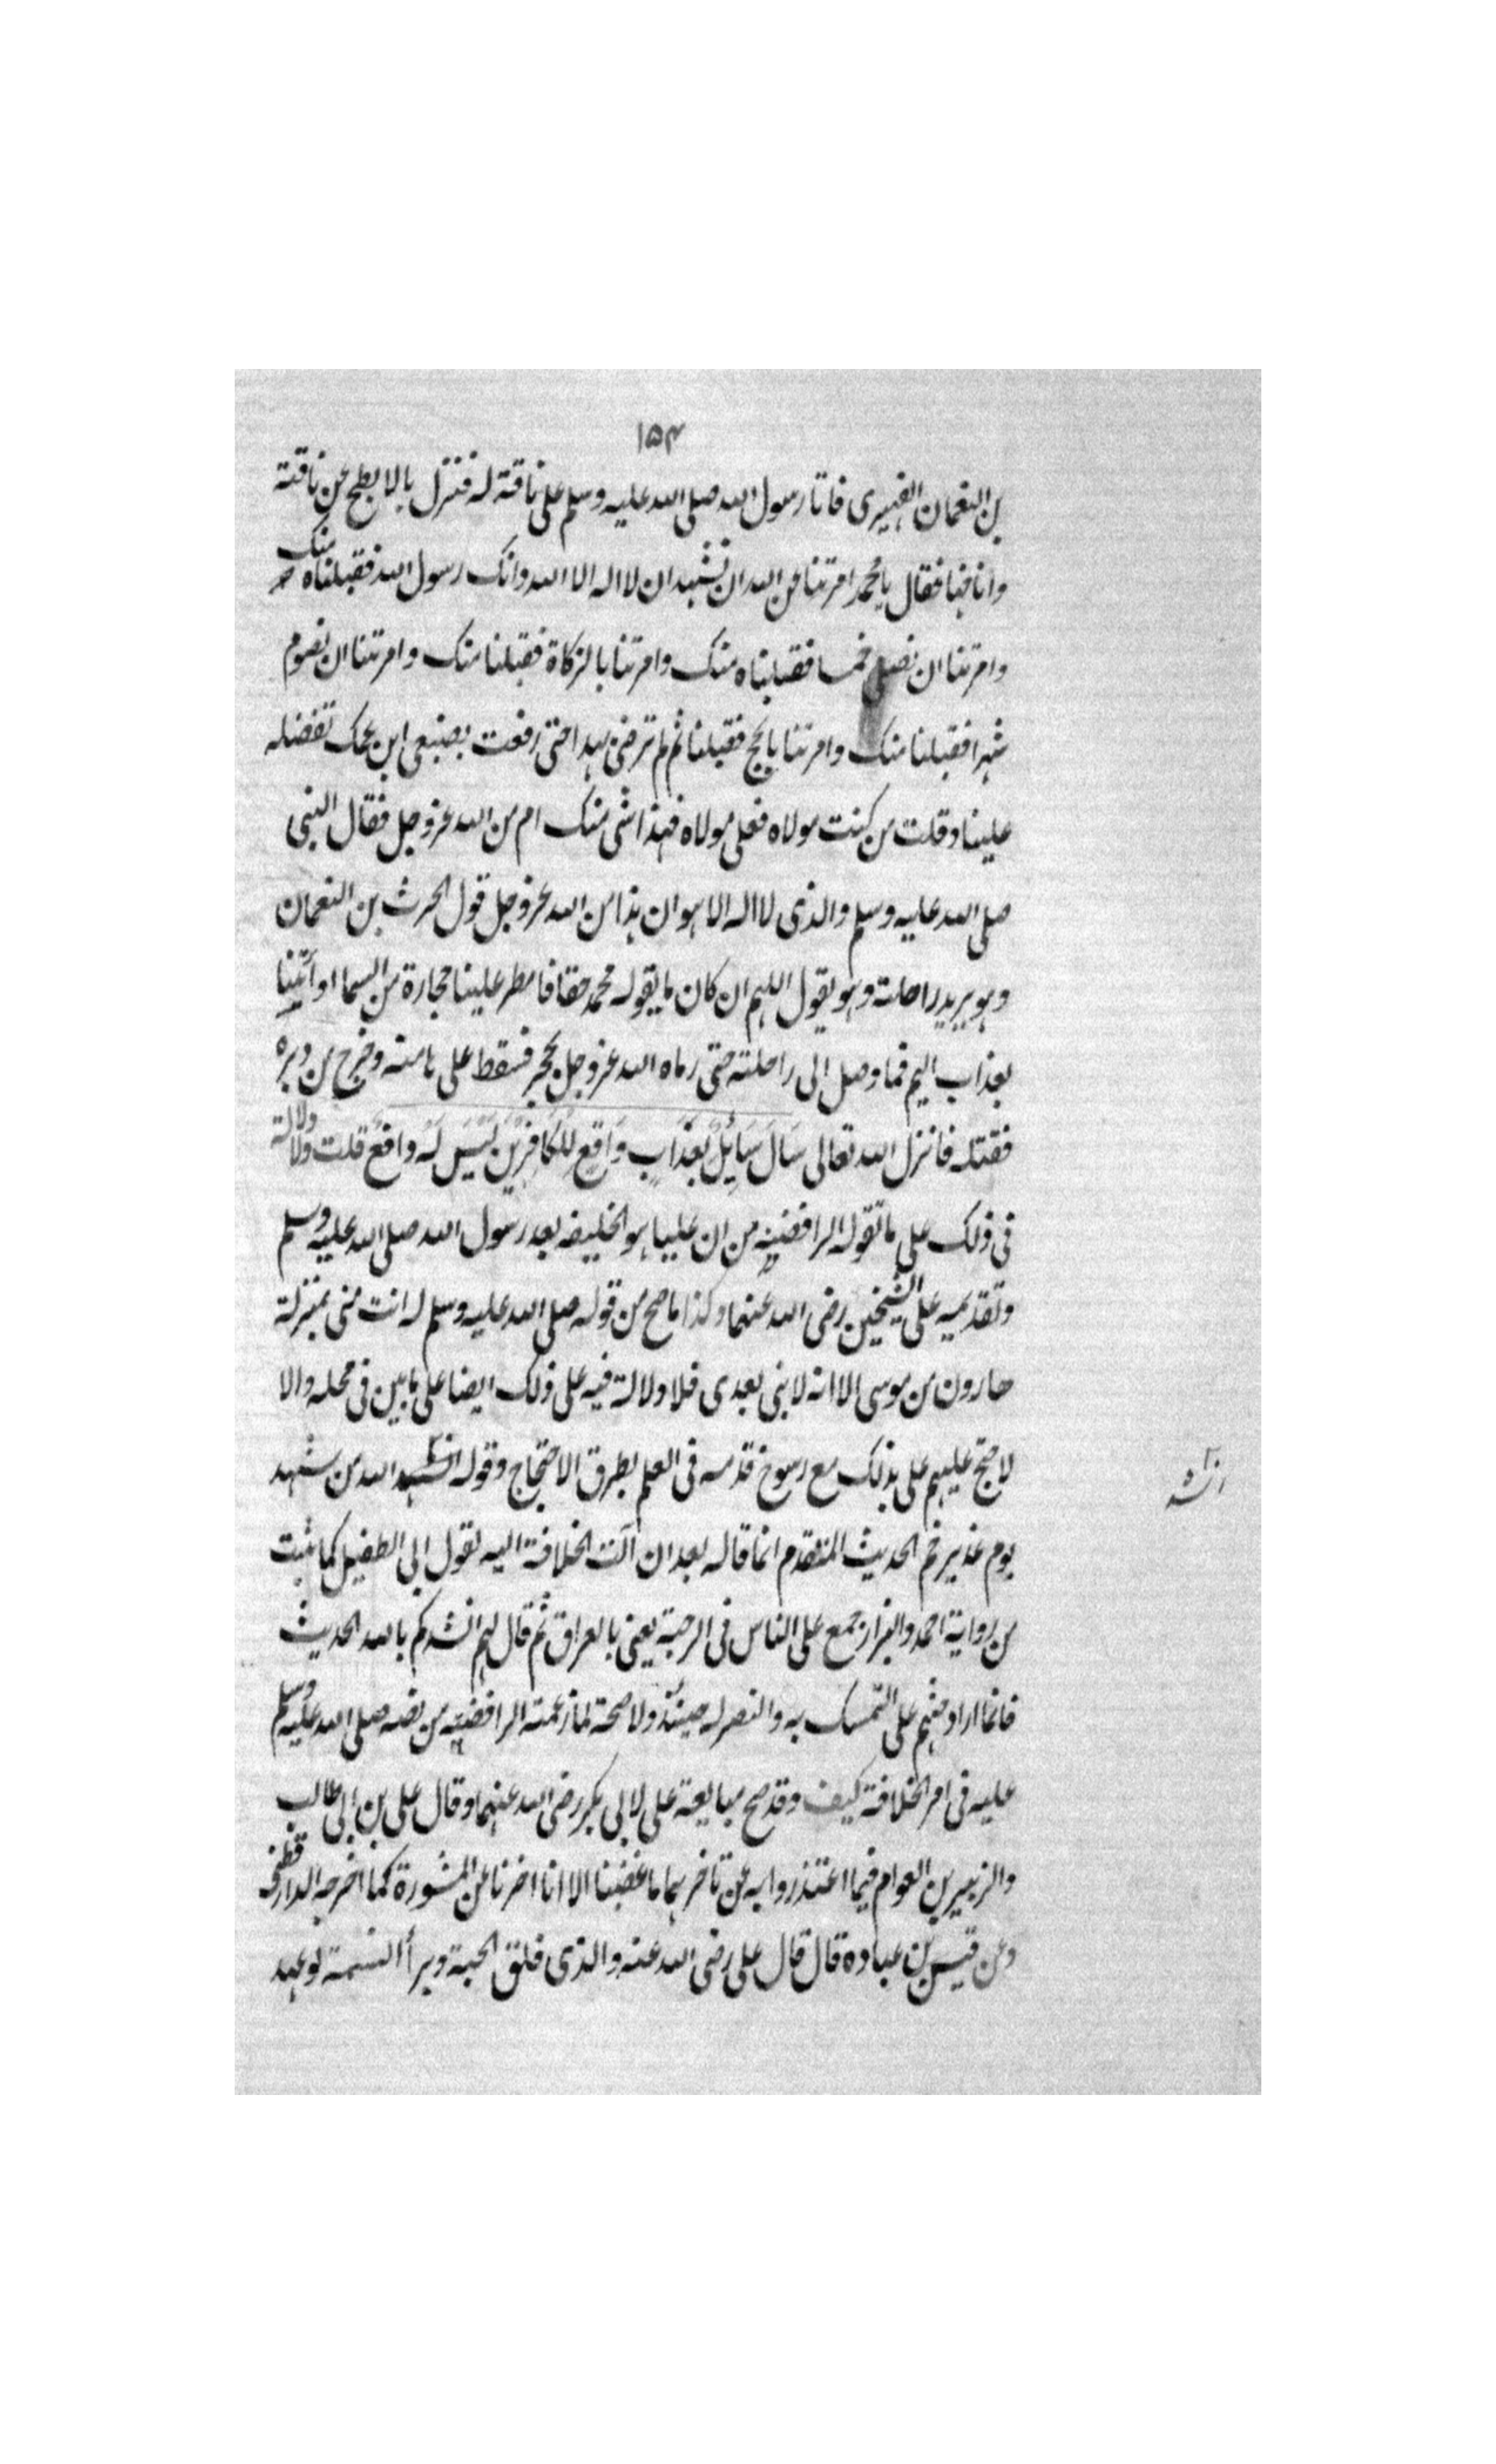 ١٥٤
بن النعمان الفهيرى فاتا رسول الله صلى الله عليه وسلم على ناقته له فنزل بالابطح عن ناقته
واناخها فقال يا محمد امرتنا عن الله ان نشهد ان لا اله الا الله وانك رسول الله فقبلناه منك
وامرتنا ان نصلى خمسا فقبلناه منك وامرتنا بالزكاة فقبلنا منك وامرتنا ان نصوم
شهرا فقبلنا منك وامرتنا بالحج فقبلنا ثم لم ترض بهذا حتى رفعت بضبعى ابن عمك تفضله
علينا وقلت من كنت مولاه فعلى مولاه فهذا شى منك ام من الله عز وجل فقال النبى
صلى الله عليه وسلم والذى لا اله الا هو ان هذا من الله عز وجل قول الحرث بن النعمان
وهو يريد راحلته وهو يقول اللهم ان كان ما يقوله محمد حقا فامطر علينا حجارة من السما او أئتنا
بعذاب اليم فما وصل الى راحلته حتى رماه الله عز وجل بحجر فسقط على هامته وخرج من دبره
فقتله فانزل الله تعالى سَالَ سَايِلٌ بعَذَابٍ وَاقِعٍ لِلْكَافِرِيْنَ لَيْسَ لَهُ دافع قلت ولا دلالة
فى ذلك على ما تقوله الرافضية من ان عليا هو الخليفه بعد رسول الله صلى الله عليه وسلم
وتقديمه على الشيخين رضى الله عنهما وكذا ما صح من قوله صلى الله عليه وسلم له انت منى بمنزلة
هارون من موسى الا انه لا نبى بعدى فلا دلالة فيه على ذلك ايضا على ما بين فى محله والا
لاحتج عليهم على بذلك مع رسوخ قدمه فى العلم بطرق الاحتجاج وقوله انشد الله من شهد
انشد
يوم غدير خم الحديث المتقدم انما قاله بعد ان آلت الخلافة اليه لقول ابى الطفيل كما ثبت
من رواية احمد والبزار جمع على الناس فى الرحبة يعنى بالعراق ثم قال لهم انشدكم بالله الحديث
فانما اراد حثهم على التمسك به والنصر له حينئذ ولا صحة لما زعمته الرافضية من نصه صلى الله عليه وسلم
عليه فى امر الخلافة كيف وقد صح مبايعة على لابى بكر رضى الله عنهما وقال على بن ابى طالب
والزبير بن العوام فيما اعتذروا به عن تاخرهما ما غضبنا الا انا اخرنا عن المشورة كما اخرجه الدارقطنى
وعن قيس بن عباده قال قال على رضى الله عنه والذى فلق الحبة وبرأ النسمة لو عهد